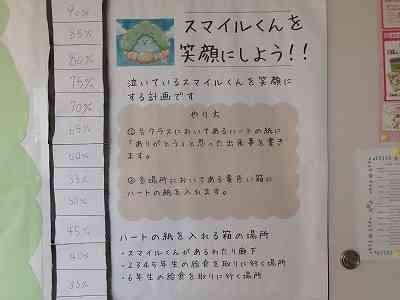 スマイルくんを
笑顔にしよう!!
泣いているスマイルくんを笑顔に
する計画です
やり方
①各クラスにおいてあるハートの紙に
「ありがとう」と思った出来事を書き
ます。
②各場所においてある黄色い箱に
ハートの紙を入れます。
ハートの紙を入れる箱の場所
・スマイルくんがあるわたり廊下
・2345年生の給食を取りに行く場所
・6年生の給食を取りに行く場所
90%
85%
80%
75%
70%
65%
60%
55%
50%
45%
40%
35%